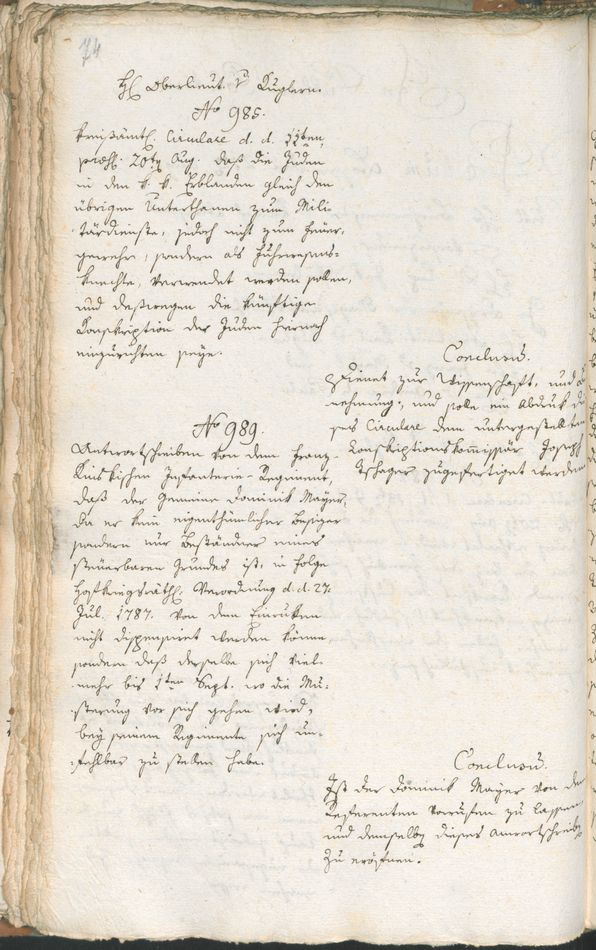 74
H. Oberlieut. v. Kuglern.
No 985.
Kreißämtl. Circulare d. d. 11ten,
præs. 20ten Aug. daß die Juden
in den k. k. Erblanden gleich den
übrigen Unterthanen zum Mili-
tärdienste, jedoch nicht zum Feuer-
gewehr, sondern als Fuhrwesens-
knechte, verwendet werden sollen,
und deßwegen die künftige
Konskription der Juden hiernach
einzurichten seye.
Conclusum.
Dienet zur Wissenschaft, und
nehmung, und solle ein Abdruck
ses Circulare dem untergestellten
Konskriptionskommissär Joseph
zugefertiget werden
No 989.
Antwortschreiben von dem Franz-
Kinskischen Infanterie-Regiment,
daß der Gemeine Dominik Mayer,
da er kein eigenthümlicher Besizer
sondern nur Beständner eines
steuerbaren Grundes ist, in Folge
Hofkriegsräthl. Verordnung d. d. 27.
Jul. 1787. von dem Einruken
nicht dispensiret werden könne,
sondern daß derselbe sich viel-
mehr bis 1ten Sept. wo die Mu-
sterung vor sich gehen wird,
bey seinem Regimente sich un-
fehlbar zu stellen habe.
Conclusum.
Ist der Dominik Mayer von dem
Referenten vorrufen zu lassen
und demselben dieses Antwortschreiben
zu eröfnen.